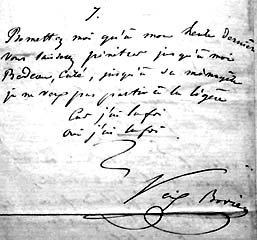 7.
Promettez moi qu'à mon heure dernière
vous laissez pénétrer jusqu'à moi
Bedeau, Curé, jusqu'à sa ménagère
je ne veux pas partir à la légère
Car j'ai la foi
oui j'ai la foi
Bovie